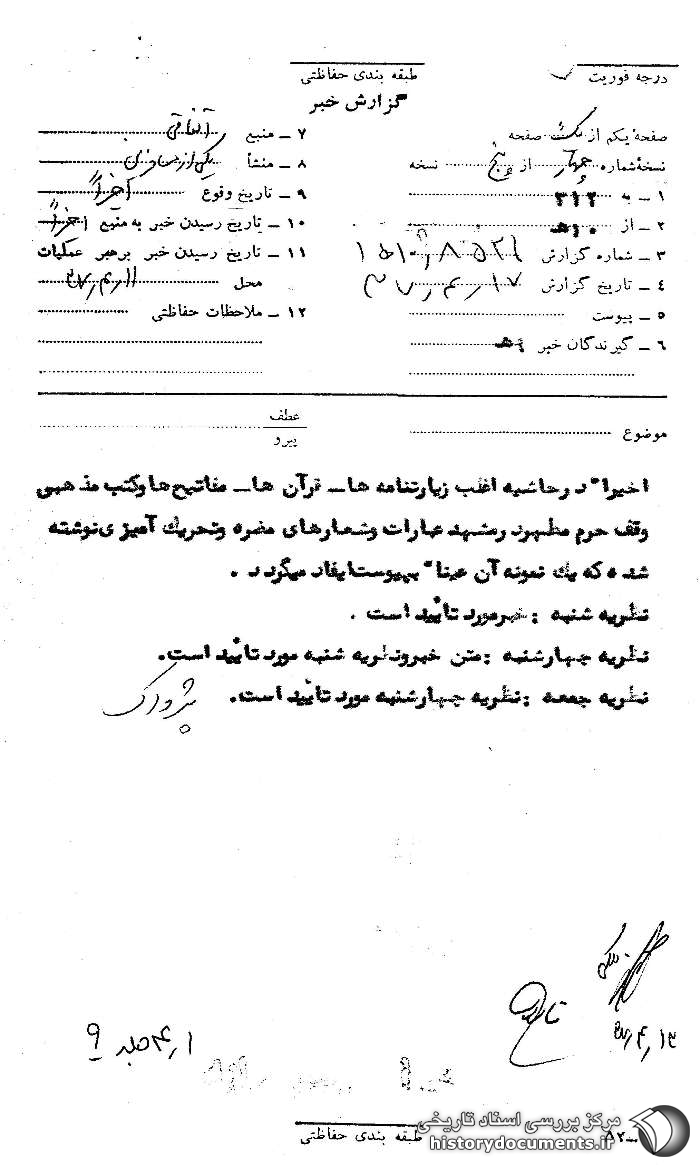 درجه فوریت
طبقه بندی حفاظتی
گزارش خبر
صفحهٔ یکم از یک صفحه
نسخهٔ شماره چهار از پنج نسخه
۱ ـ به ۳۱۲
۲ ـ از ۱۰ه‍
۳ ـ شماره گزارش
۴ ـ تاریخ گزارش
۵ ـ پیوست
۶ ـ گیرندگان خبر
۷ ـ منبع اتفاقی
۸ ـ منشأ یکی از مسافرین
۹ ـ تاریخ وقوع اخیراً
۱۰ ـ تاریخ رسیدن خبر به منبع اخیراً
۱۱ ـ تاریخ رسیدن خبر برهبر عملیات
محل
۱۲ ـ ملاحظات حفاظتی
موضوع
عطف
پیرو
اخیرا" در حاشیه اغلب زیارتنامه هاـ قرآن هاـ مفاتیح ها وکتب مذهبی
وقف حرم مطهر در مشهد عبارات وشعارهای مضره وتحریک آمیزی نوشته
شده که یک نمونه آن عینا" بپیوست ایفاد میگردد .
نظریه شنبه : خبر مورد تائید است .
نظریه چهارشنبه : متن خبر ونظریه شنبه مورد تائید است.
نظریه جمعه : نظریه چهارشنبه مورد تائید است. پژواک
طبقه بندی حفاظتی
مرکز بررسی اسناد تاریخی
historydocuments.ir